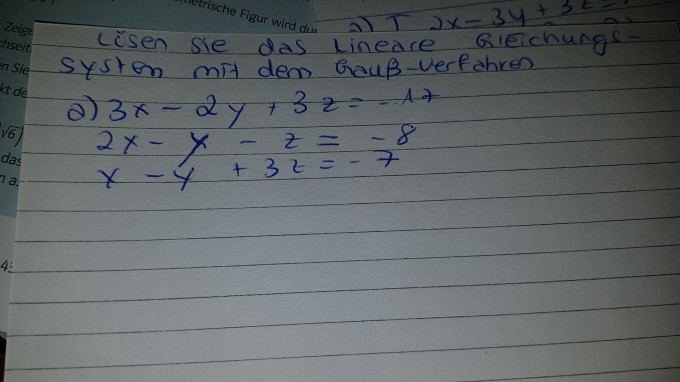 metrische Figur wird du
a) I 2x - 3y + 3z =
Zeige
Lösen sie das Lineare Gleichungs-
system mit dem Gauß-Verfahren
en Sie
kt de
a) 3x - 2y + 3z = -17
√6)
2x - y - z = -8
das
x - y + 3z = -7
n a
4